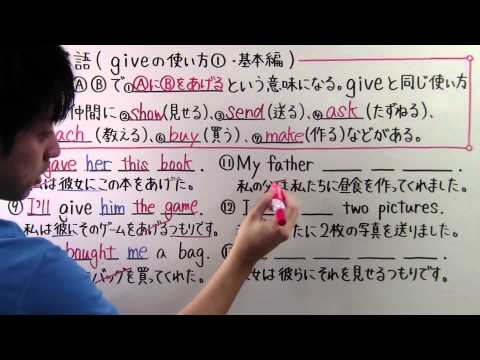 語(giveの使い方①・基本編)
ⒶⒷで①ⒶにⒷをあげるという意味になる。giveと同じ使い方
仲間に②show(見せる)、③send(送る)、④ask(たずねる)、
ach(教える)、⑥buy(買う)、⑦make(作る)などがある。
gave her this book.
は彼女にこの本をあげた。
⑨I'll give him the game.
私は彼にそのゲームをあげるつもりです。
bought me a bag.
バッグを買ってくれた。
⑪My father
私の父は私たちに昼食を作ってくれました。
⑫I two pictures.
たに2枚の写真を送りました。
女は彼らにそれを見せるつもりです。